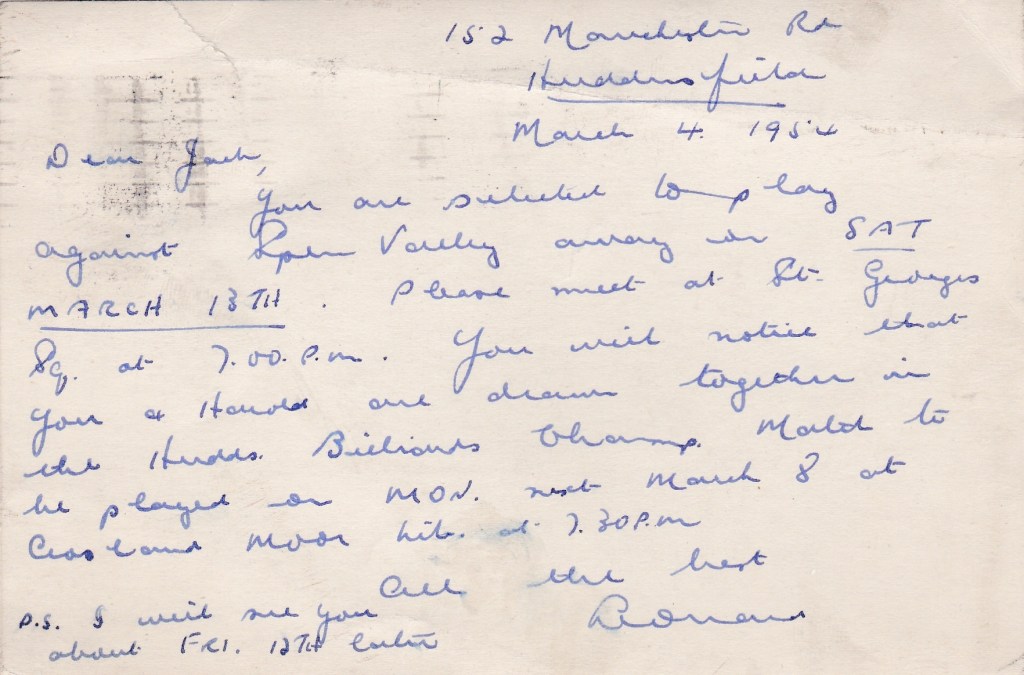 152 Manchester Rd
Huddersfield
March 4. 1954
Dear Jack,
You are selected to play
against Spen Valley away on SAT
MARCH 13TH. Please meet at St. Georges
Sq. at 7.00.P.m. You will notice that
you & Harold are drawn together in
the Hudds. Billiards Champ. Match to
be played on MON. next March 8 at
Crosland Moor Lib. at 7.30P.m
All the best
P.S. I will see you
about FRI. 12TH later